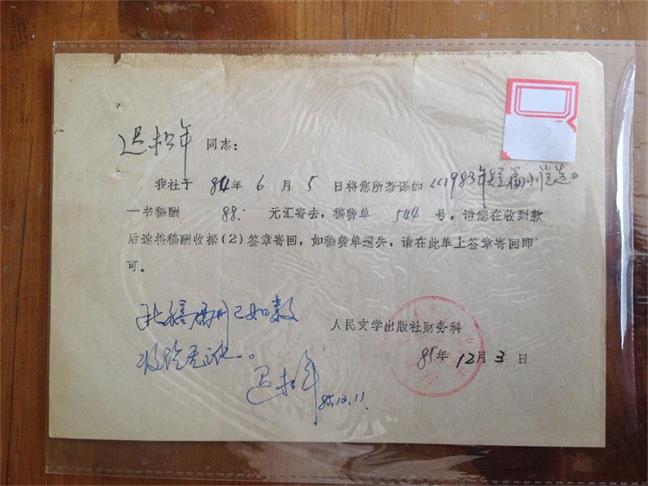 迟松年 同志：
我社于 84年 6 月 5 日将您所著译的《1983年短篇小说选》
一书稿酬 88. 元汇寄去，稿费单 544 号，请您在收到款
后速将稿酬收据(2)签章寄回，如稿费单遗失，请在此单上签章寄回即
可。
此稿费用已如数
收讫无讹。
迟松年 85.12.11.
人民文学出版社财务科
85年 12月 3 日